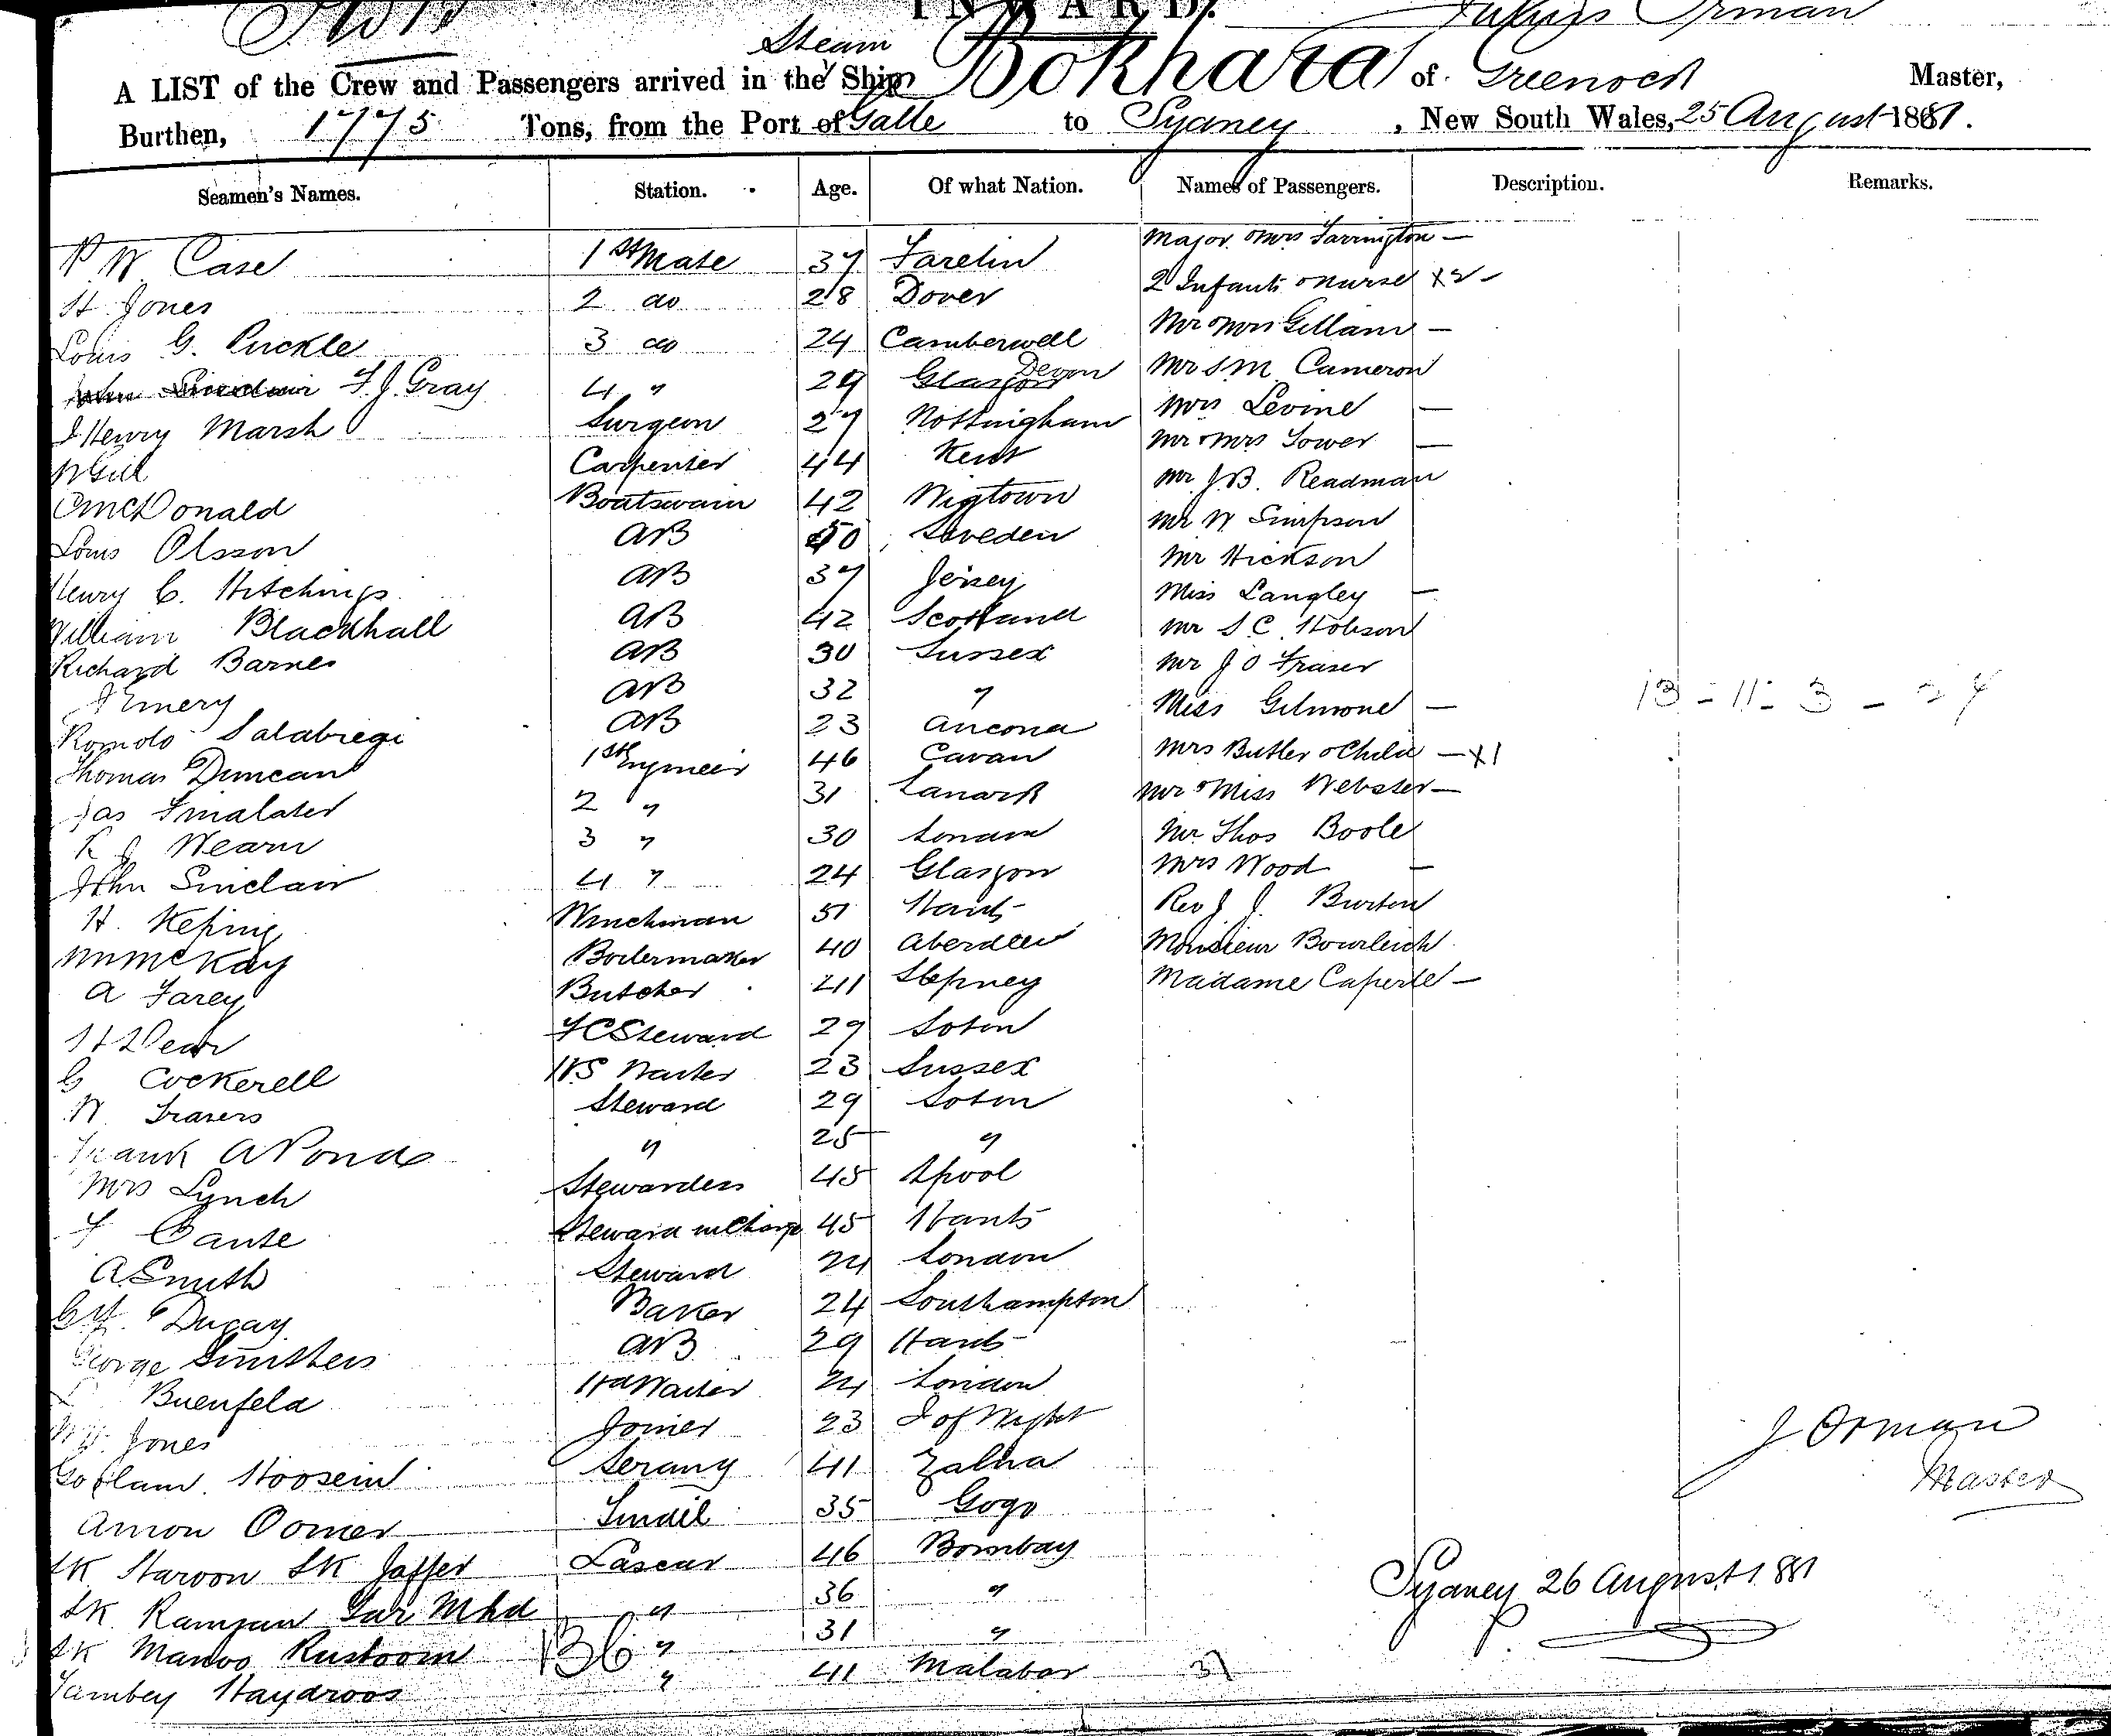 INWARD.
Steam
A LIST of the Crew and Passengers arrived in the Ship Bokhara of Greenock Master,
Burthen, 1775 Tons, from the Port of Galle to Sydney, New South Wales, 25 August 1881.
Seamen's Names. Station. Age. Of what Nation. Names of Passengers. Description. Remarks.
P W Case 1st Mate 37 Major & Mrs Farrington —
H Jones 2 do 28 Dover 2 Infants & Nurse x2 —
Louis G. Puckle 3 do 24 Camberwell Mr & Mrs Gillam —
John Sinclair F. J. Gray 4 " 29 Glasgow Devon Mr S M Cameron
J Henry Marsh Surgeon 27 Nottingham Mrs Levine —
W Gill Carpenter 44 Kent Mr & Mrs Tower —
C McDonald Boatswain 42 Wigtown Mr J. B. Readman
Louis Olsson AB 50 Sweden Mr W Simpson
Henry C. Hitchings AB 37 Jersey Mr Hickson
William Blackhall AB 42 Scotland Miss Langley —
Richard Barnes AB 30 Sussex Mr S C Hobson
J Emery AB 32 " Mr J O Fraser
Romolo Salabregi AB 23 Ancona Miss Gilmone —
Thomas Duncan 1st Engineer 46 Cavan Mrs Butler & Child — x1
Jas Finalater 2 " 31 Lanark Mr & Miss Webster —
R J Wearn 3 " 30 London Mr Thos Boole
John Sinclair 4 " 24 Glasgow Mrs Wood —
H. Keping Winchman 51 Hants Rev J. J. Burton
Wm McKay Boilermaker 40 Aberdeen Monsieur
A Farey Butcher 41 Stepney Madame —
H Dear FC Steward 29 Soton
G Cockerell Waiter 23 Sussex
W Steward 29 Soton
Frank A Pond " 25 "
Mrs Lynch Stewardess 45 Lpool
F Cante Steward in Charge 45 Hants
A Smith Steward 24 London
Dugay Baker 24 Southampton
George Smithers AB 29 Hants
Buenfeld Hd Waiter 24 London
Jones Joiner 23 I of Wight
Goolam Hoosein Serang 41
Amon Oomer Tindil 35 Gogo
SK Haroon SK Jaffer Lascar 46 Bombay
SK Ramjan Mhd " 36 "
SK Manoo Rustoom " 31 "
Haydroos " 41 Malabar
136
37
13 - 11 - 3 - 27
J Orman
Master
Sydney 26 August 1881